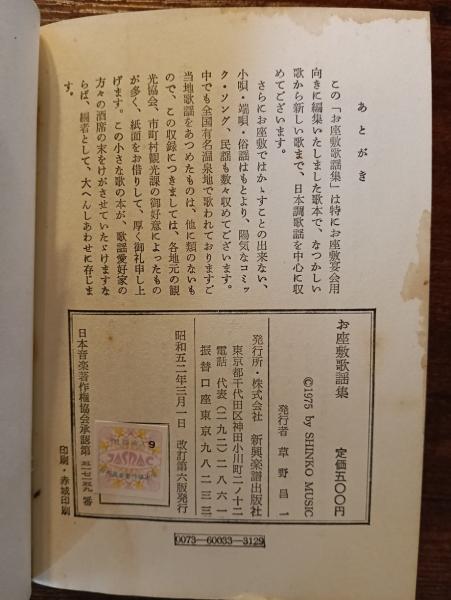 あとがき
この「お座敷歌謡集」は特にお座敷宴会用
向きに編集いたしました歌本で、なつかしい
歌から新しい歌まで、日本調歌謡を中心に収
めてございます。
さらにお座敷ではかゝすことの出来ない、
小唄・端唄・俗謡はもとより、陽気なコミッ
ク・ソング、民謡も数々収めてございます。
中でも全国有名温泉地で歌われておりますご
当地歌謡をあつめたものは、他に類のないも
ので、この収録につきましては、各地元の観
光協会、市町村観光課の御好意によったもの
が多く、紙面をお借りして、厚く御礼申し上
げます。この小さな歌の本が、歌謡愛好家の
方々の酒席の末をけがさせていたゞけますな
らば、編者として、大へんしあわせに存じま
す。
お座敷歌謡集
定価五〇〇円
©1975 by SHINKO MUSIC
発行者 草野昌一
発行所・株式会社 新興楽譜出版社
東京都千代田区神田小川町二ノ十二
電話 代表(二九二)二八六一
振替口座東京九八二三三
昭和五二年三月一日 改訂第六版発行
日本音楽著作権協会承認第 五一七二一五九 番
JASRAC
9
印刷・赤城印刷
0073-60033-3129